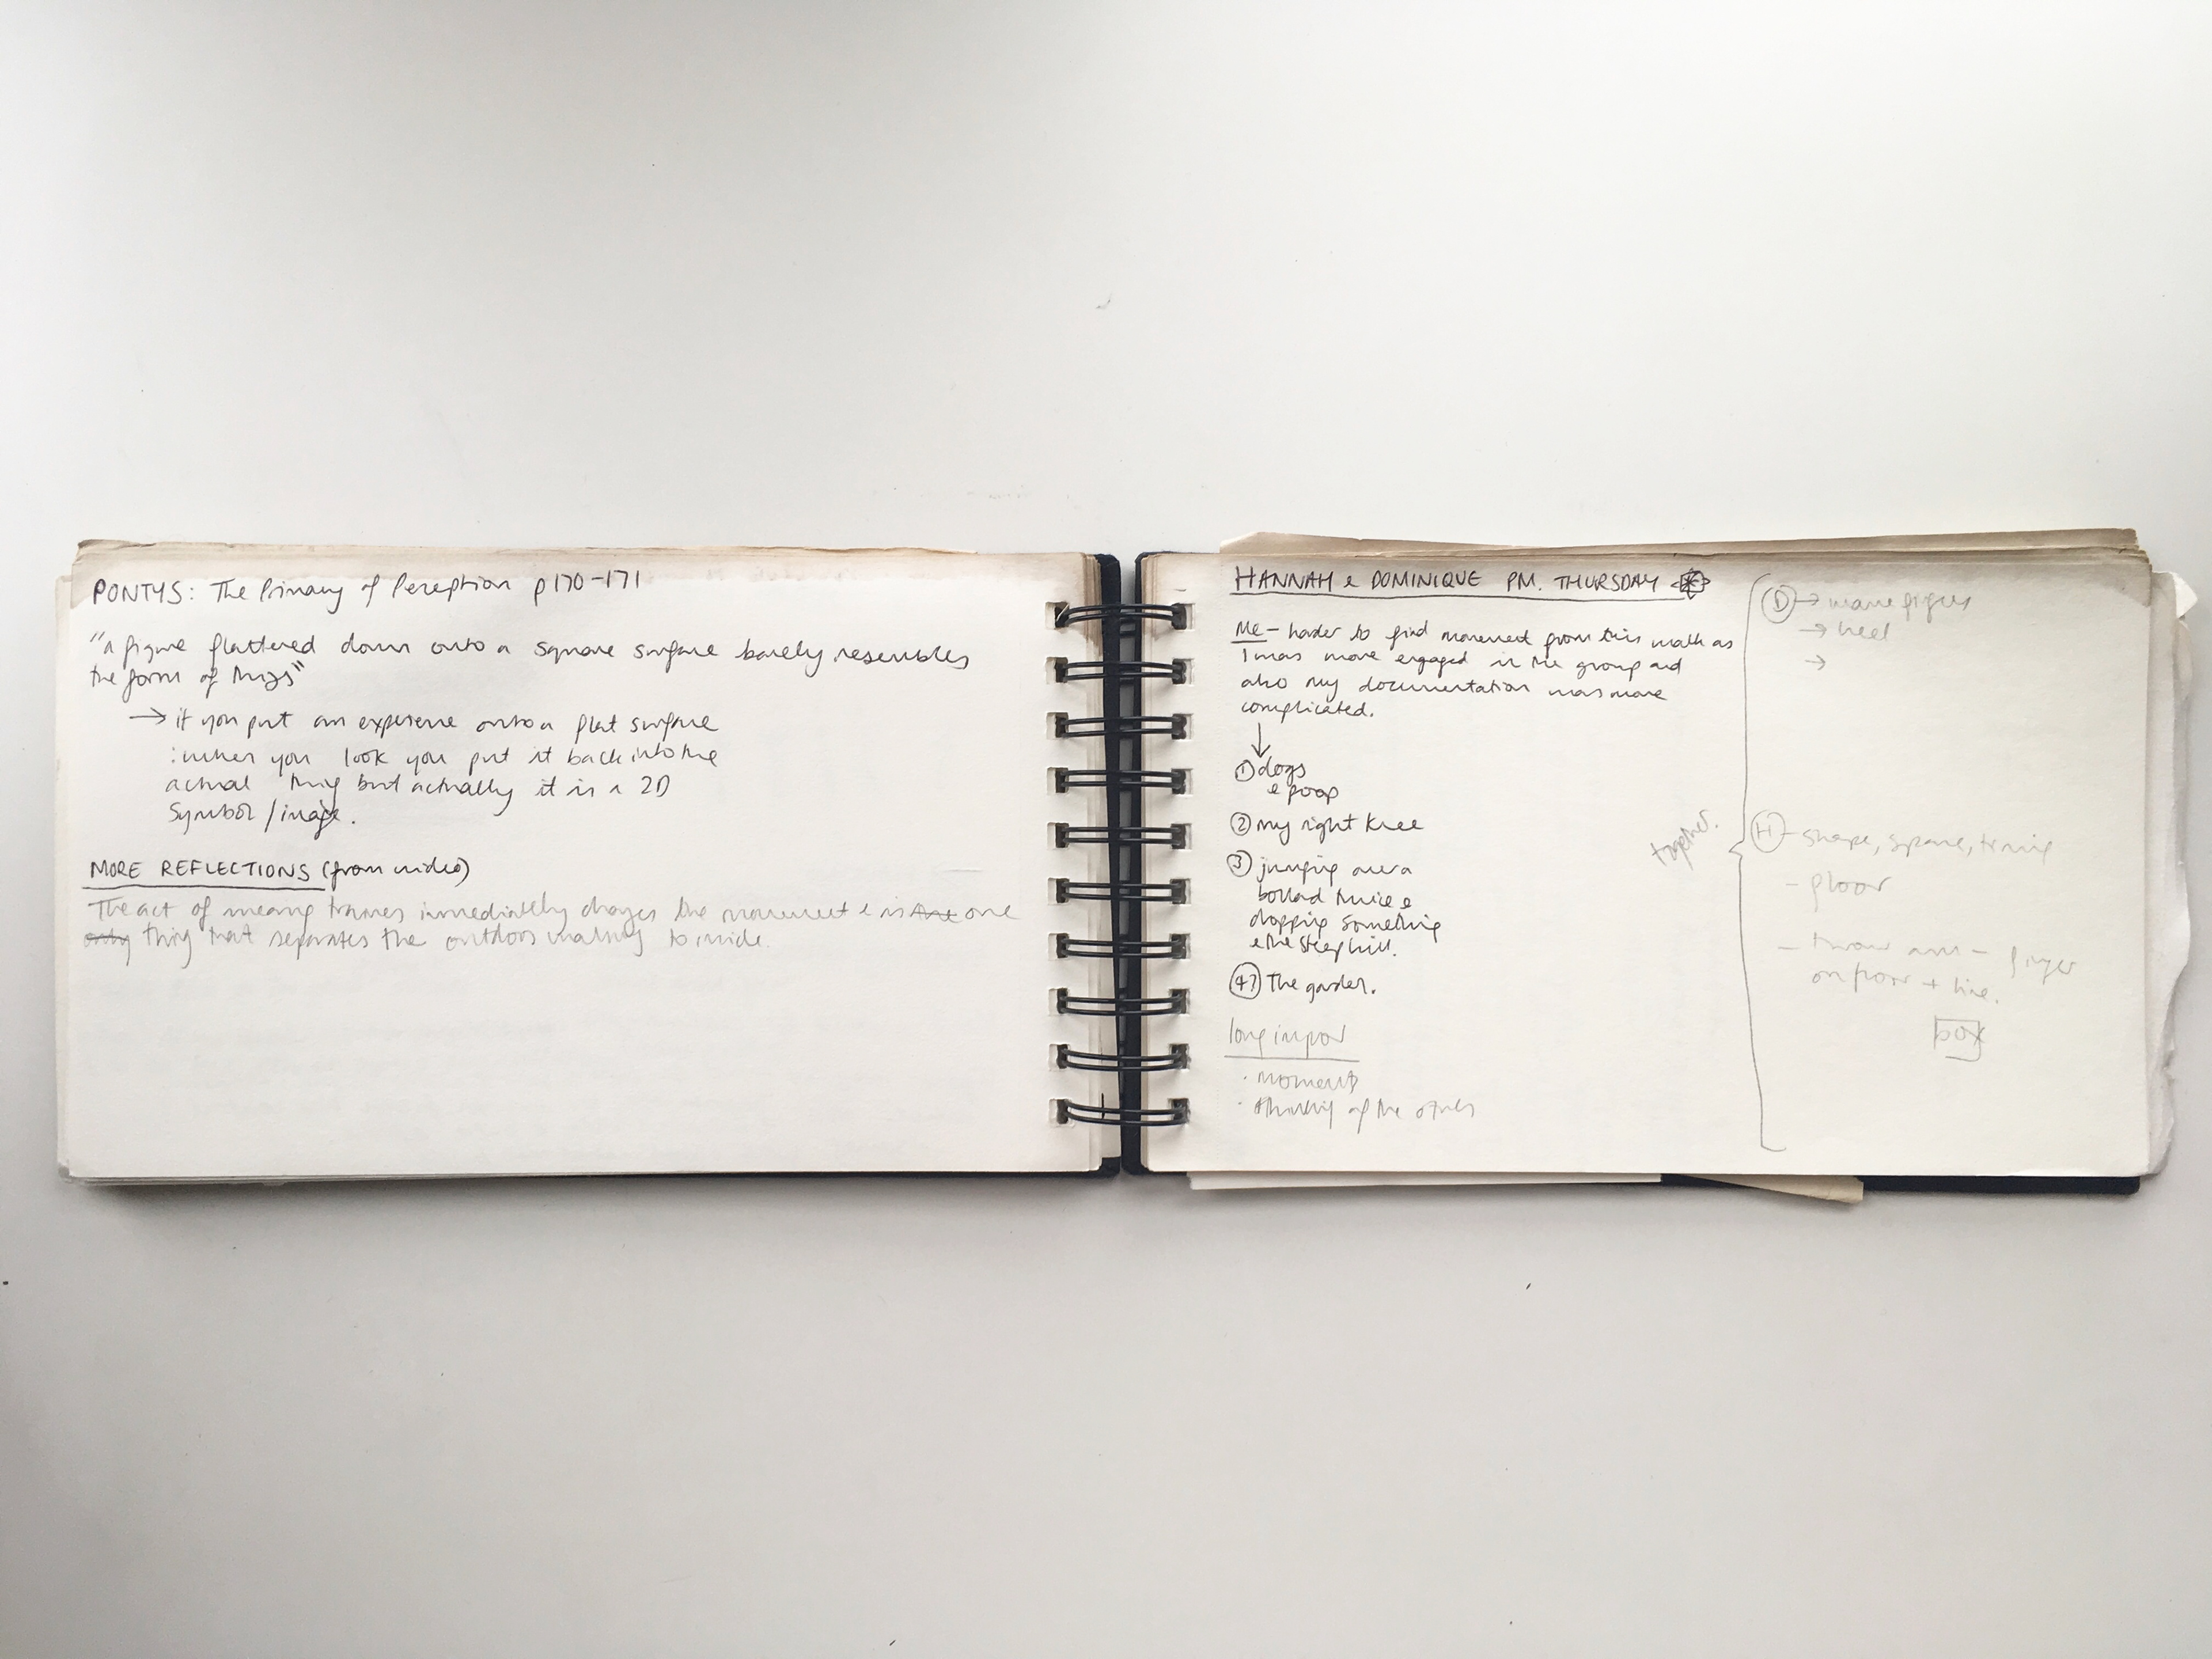 PONTYS: The Primacy of Perception p170-171
"a figure flattened down onto a square surface barely resembles
the form of things"
→ if you put an experience onto a flat surface
: when you look you put it back into the
actual thing but actually it is a 2D
symbol/image.
MORE REFLECTIONS (from video)
The act of wearing trainers immediately changes the movement & is the one
only thing that separates the outdoors walking to inside.
HANNAH & DOMINIQUE PM. THURSDAY
ME - harder to find movement from this walk as
I was more engaged in the group and
also my documentation was more
complicated.
↓
① dogs
& poop
② my right knee
③ jumping over a
bollard twice &
dropping something
& the steep hill.
④? The garden.
long
· moments
· thinking of the others
together.
Ⓓ →
→ heel
→
Ⓗ - shape, space, timing
- floor
- throw arm - finger
on floor + line.
box